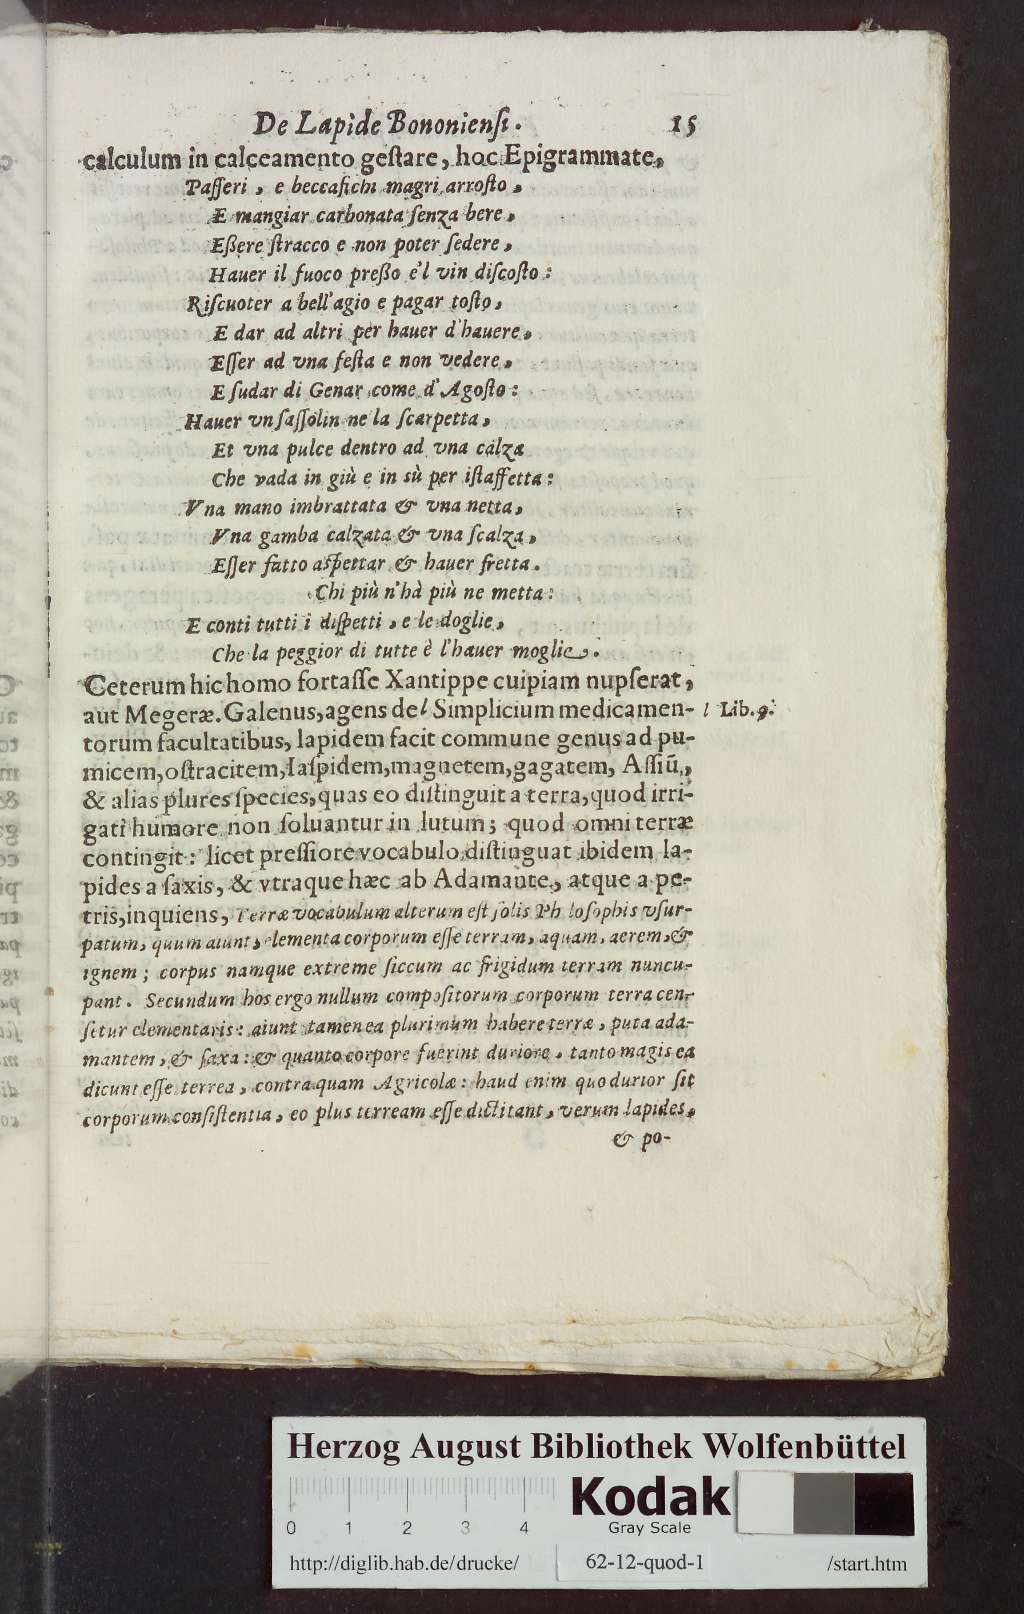 De Lapide Bononienſi. 15
calculum in calceamento geſtare, hoc Epigrammate,
Paſſeri, e beccafichi magri arroſto,
E mangiar carbonata ſenza bere,
Eßere ſtracco e non poter ſedere,
Hauer il fuoco preßo e'l vin diſcoſto:
Riſcuoter a bell'agio e pagar toſto,
E dar ad altri per hauer d'hauere,
Eſſer ad vna feſta e non vedere,
E ſudar di Genar come d'Agoſto:
Hauer vn ſaſſolin ne la ſcarpetta,
Et vna pulce dentro ad vna calza
Che vada in giù e in sù per iſtaffetta:
Vna mano imbrattata & vna netta,
Vna gamba calzata & vna ſcalza,
Eſſer fatto aſpettar & hauer fretta.
Chi più n'hà più ne metta:
E conti tutti i diſpetti, e le doglie,
Che la peggior di tutte è l'hauer moglie.
Ceterum hic homo fortaſſe Xantippe cuipiam nupſerat,
aut Megeræ. Galenus, agens de l Simplicium medicamen- l Lib. 9.
torum facultatibus, lapidem facit commune genus ad pu-
micem, oſtracitem, Iaſpidem, magnetem, gagatem, Aſſiũ,
& alias plures ſpecies, quas eo diſtinguit a terra, quod irri-
gati humore non ſoluantur in lutum; quod omni terræ
contingit: licet preſſiore vocabulo diſtinguat ibidem la-
pides a ſaxis, & vtraque hæc ab Adamante, atque a pe-
tris, inquiens, Terræ vocabulum alterum eſt ſolis Ph loſophis vſur-
patum, quum aiunt, elementa corporum eſſe terram, aquam, aerem, &
ignem; corpus namque extreme ſiccum ac frigidum terram nuncu-
pant. Secundum hos ergo nullum compoſitorum corporum terra cen-
ſetur elementaris: aiunt tamen ea plurimum habere terræ, puta ada-
mantem, & ſaxa: & quanto corpore fuerint duriore, tanto magis ea
dicunt eſſe terrea, contra quam Agricolæ: haud enim quo durior ſit
corporum conſiſtentia, eo plus terream eſſe dictitant, verum lapides,
& po-
Herzog August Bibliothek Wolfenbüttel
0 1 2 3 4
Kodak
Gray Scale
http://diglib.hab.de/drucke/ 62-12-quod-1 /start.htm